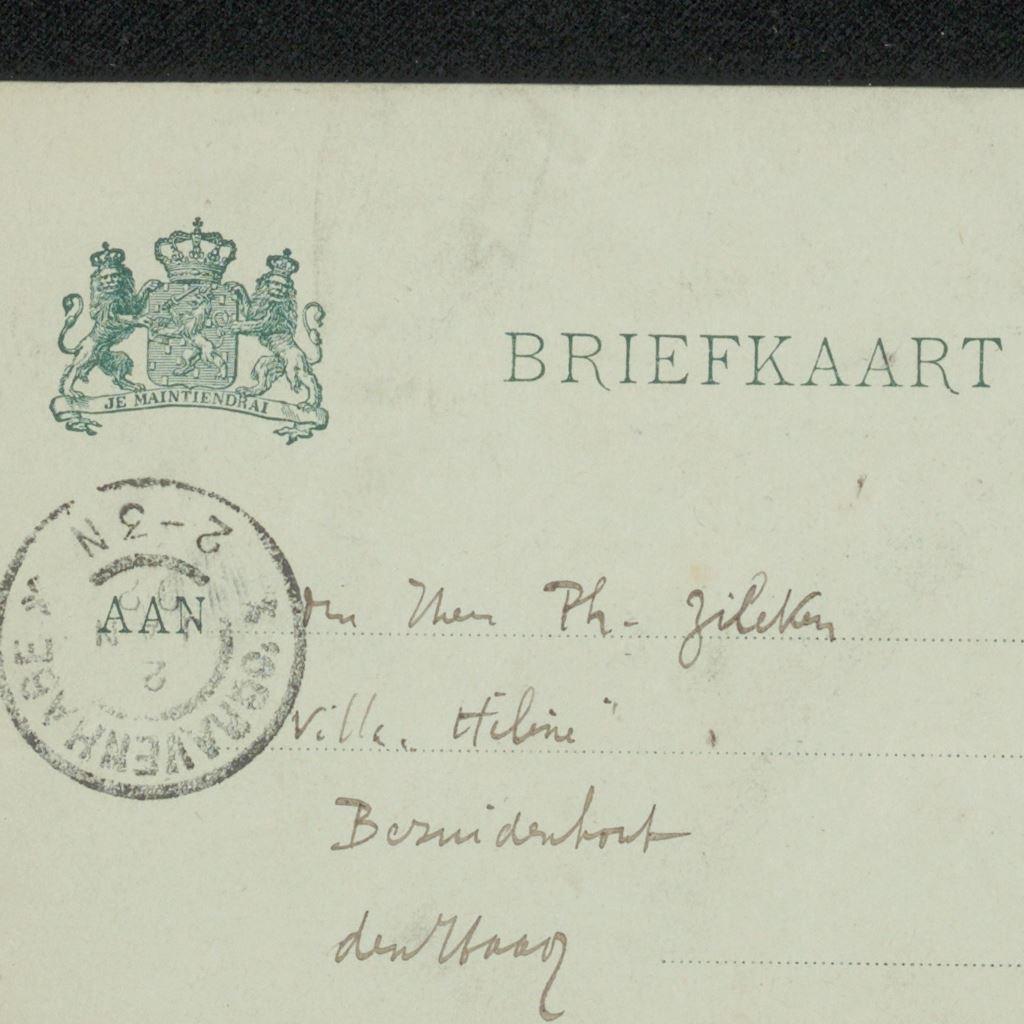 JE MAINTIENDRAI
BRIEFKAART
'SGRAVENHAGE
2-3N
AAN
den Heer Ph. Zilcken
Villa "Hélène"
Bezuidenhout
den Haag